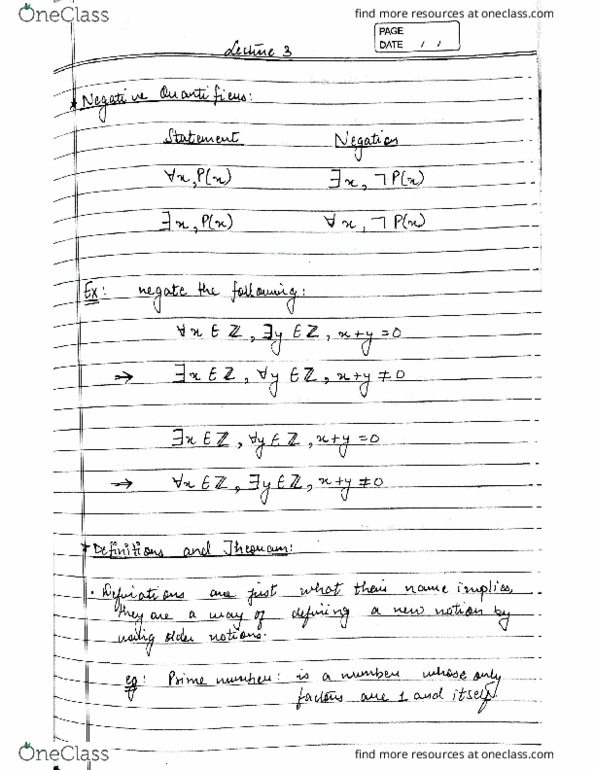 OneClass
find more resources at oneclass.com
PAGE
DATE / /
Lecture 3
* Negative Quantifiers:
Statement Negation
∀x, P(x) ∃x, ¬P(x)
∃x, P(x) ∀x, ¬P(x)
Ex: negate the following:
∀x ∈ ℤ, ∃y ∈ ℤ, x+y=0
→ ∃x ∈ ℤ, ∀y ∈ ℤ, x+y ≠ 0
∃x ∈ ℤ, ∀y ∈ ℤ, x+y=0
→ ∀x ∈ ℤ, ∃y ∈ ℤ, x+y ≠ 0
* Definitions and Theorem:
· Definations are just what their name implies,
they are a way of defining a new notion by
using older notions.
eg: Prime number: is a number whose only
factors are 1 and itself
OneClass
find more resources at oneclass.com